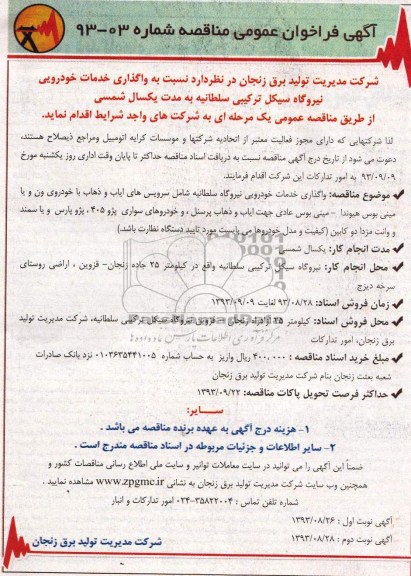 آگهی فراخوان عمومی مناقصه شماره ۰۳-۹۳
شرکت مدیریت تولید برق زنجان در نظردارد نسبت به واگذاری خدمات خودرویی
نیروگاه سیکل ترکیبی سلطانیه به مدت یکسال شمسی
از طریق مناقصه عمومی یک مرحله ای به شرکت های واجد شرایط اقدام نماید.
لذا شرکتهایی که دارای مجوز فعالیت معتبر از اتحادیه شرکتها و موسسات کرایه اتومبیل ومراجع ذیصلاح هستند،
دعوت می شود از تاریخ درج آگهی مناقصه نسبت به دریافت اسناد مناقصه حداکثر تا پایان وقت اداری روز یکشنبه مورخ
۹۳/۰۹/۰۹ به امور تدارکات این شرکت اقدام فرمایند.
موضوع مناقصه: واگذاری خدمات خودرویی نیروگاه سلطانیه شامل سرویس های ایاب و ذهاب با خودروی ون و یا
مینی بوس هیوندا - مینی بوس عادی جهت ایاب و ذهاب پرسنل ، و خودروهای سواری پژو ۴۰۵ ، پژو پارس و یا سمند
و وانت مزدا دو کابین (کیفیت و مدل خودروها می بایست مورد تایید دستگاه نظارت باشد)
مدت انجام کار: یکسال شمسی
محل انجام کار: نیروگاه سیکل ترکیبی سلطانیه واقع در کیلومتر ۲۵ جاده زنجان- قزوین ، اراضی روستای
سرخه دیزج
زمان فروش اسناد: ۹۳/۰۸/۲۸ لغایت ۱۳۹۳/۰۹/۰۹
محل فروش اسناد: کیلومتر ۲۵ آزادراه زنجان - قزوین نیروگاه سیکل ترکیبی سلطانیه، شرکت مدیریت تولید
برق زنجان، امور تدارکات
مبلغ خرید اسناد مناقصه : ۴۰۰,۰۰۰ ریال واریز به حساب شماره ۰۱۰۳۶۳۵۴۴۱۰۰۵ نزد بانک صادرات
شعبه بعثت زنجان بنام شرکت مدیریت تولید برق زنجان
حداکثر فرصت تحویل پاکات مناقصه: ۱۳۹۳/۰۹/۲۲
سـایر:
۱- هزینه درج آگهی به عهده برنده مناقصه می باشد .
۲- سایر اطلاعات و جزئیات مربوطه در اسناد مناقصه مندرج است .
ضمناً این آگهی را می توانید در سایت معاملات توانیر و سایت ملی اطلاع رسانی مناقصات کشور و
همچنین وب سایت شرکت مدیریت تولید برق زنجان به نشانی www.zpgmc.ir مشاهده نمایید .
شماره تلفن تماس : ۳۵۸۲۲۰۰۴-۰۲۴ امور تدارکات و انبار
آگهی نوبت اول : ۱۳۹۳/۰۸/۲۶
آگهی نوبت دوم : ۱۳۹۳/۰۸/۲۸
شرکت مدیریت تولید برق زنجان